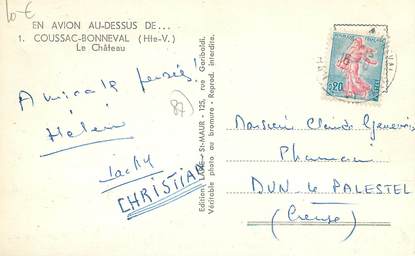 10€
EN AVION AU-DESSUS DE...
1. COUSSAC-BONNEVAL (Hte-V.)
Le Château
Amicale pensées!
Hélène
Jacky
CHRISTIAN
87
Edition LAPIE - St-MAUR - 125, rue Garibaldi.
Véritable photo au bromure - Reprod. interdite.
FRANÇAISE
0,20
POSTES
Monsieur Claude Genevois
Pharmacien
DUN-le PALESTEL
(Creuse)